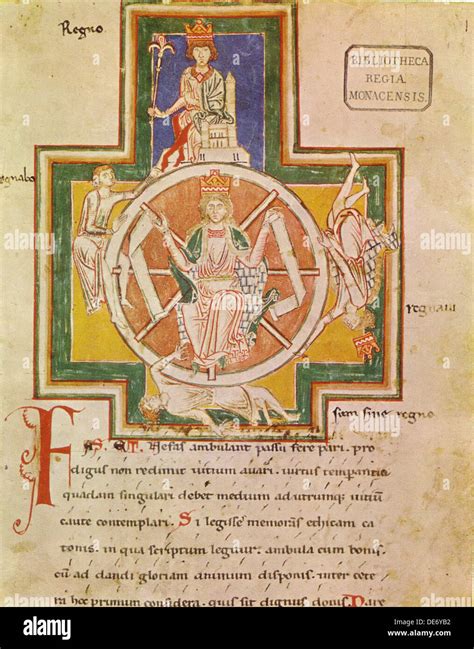 Regno
BIBLIOTHECA
REGIA
MONACENSIS.
regnabo
regnaui
sum sine regno
FAS. ET Nefas ambulant passu fere pari. pro
digus non redimit uicium auari. uirtus temperantia
quadam singulari debet medium ad utrumque uitiũ
caute contemplari. Si legisse memoras ethicam ca
tonis. in qua scriptum legitur. ambula cum bonis.
cũ ad dandi gloriam animum disponis. inter cete
ra hoc primum considera. quis sit dignus donis.
alamy
alamy stock photo
DE6YB2
www.alamy.com